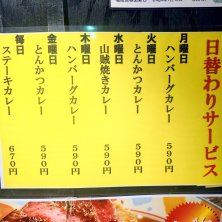 日替わりサービス
月曜日
ハンバーグカレー 590円
火曜日
とんかつカレー 590円
水曜日
山賊焼きカレー 590円
木曜日
ハンバーグカレー 590円
金曜日
とんかつカレー 590円
毎日
ステーキカレー 670円